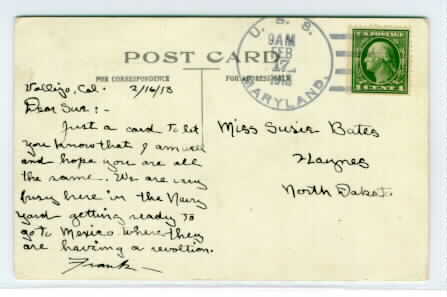 POST CARD
FOR CORRESPONDENCE
FOR ADDRESS ONLY
U. S. S.
9AM
FEB
17
MARYLAND.
1 CENT 1
Vallejo, Cal. 2/16/13
Dear Sue:-
Just a card to let
you know that I am well
and hope you are all
the same. We are very
busy here in the Navy
yard getting ready to
go to Mexico where they
are having a revoltion.
Frank
Miss Susie Bates
Haynes
North Dakota.